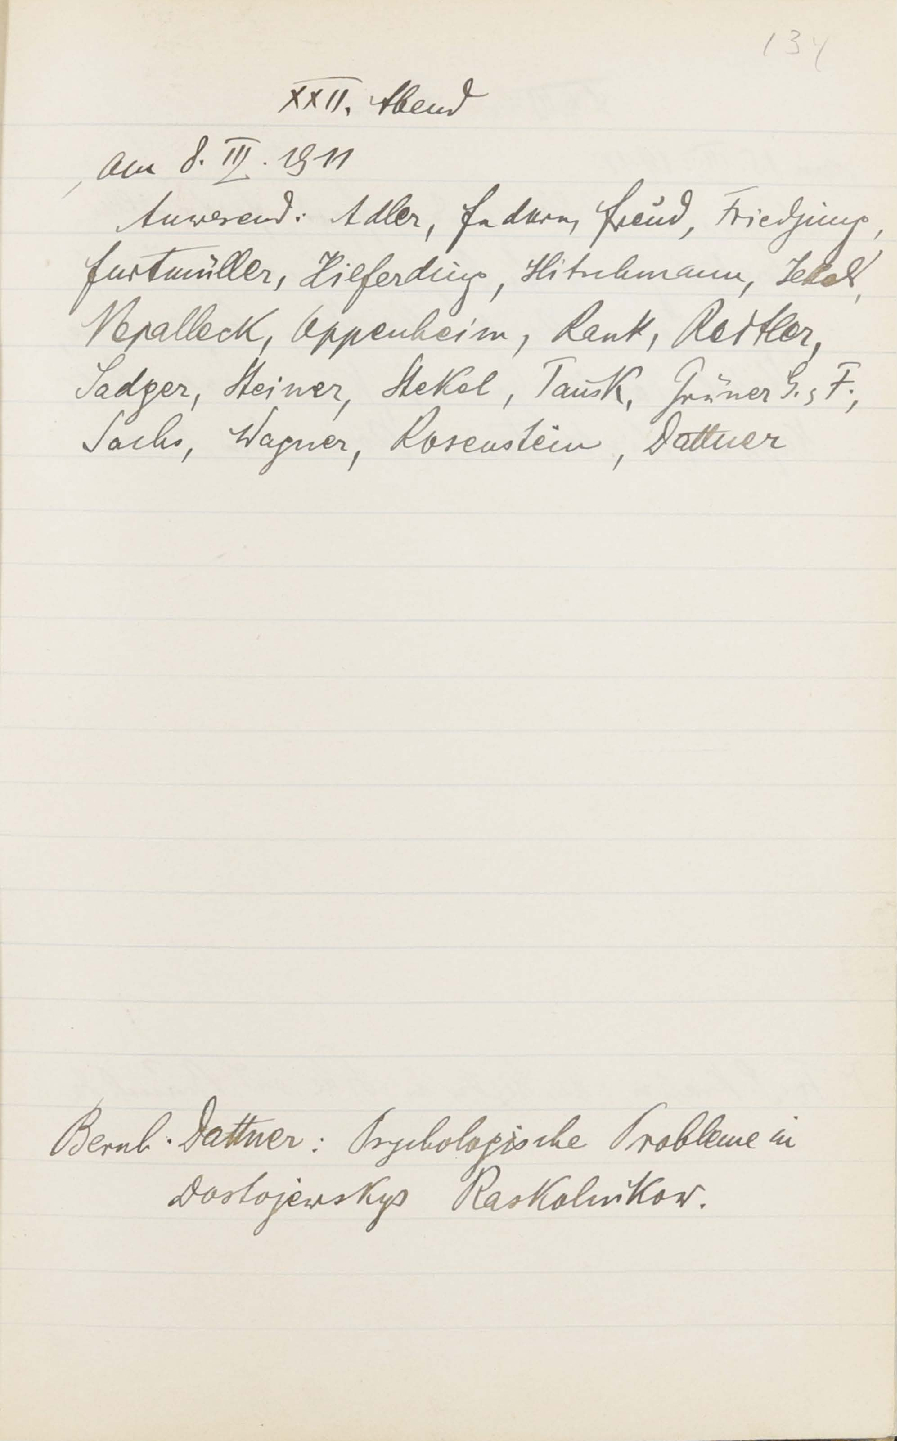 134
XXII. Abend
am 8. III. 1911
Anwesend: Adler, Federn, Freud, Friedjung,
Furtmüller, Hilferding, Hitschmann, Jekels,
Nepalleck, Oppenheim, Rank, Reitler,
Sadger, Steiner, Stekel, Tausk, Grüner G., F.,
Sachs, Wagner, Rosenstein, Dattner
Bernh. Dattner: Psychologische Probleme in
Dostojewskys Raskolnikow.